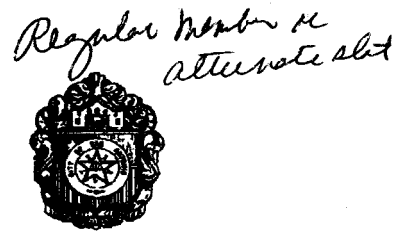 Regular Member or
alternate slot